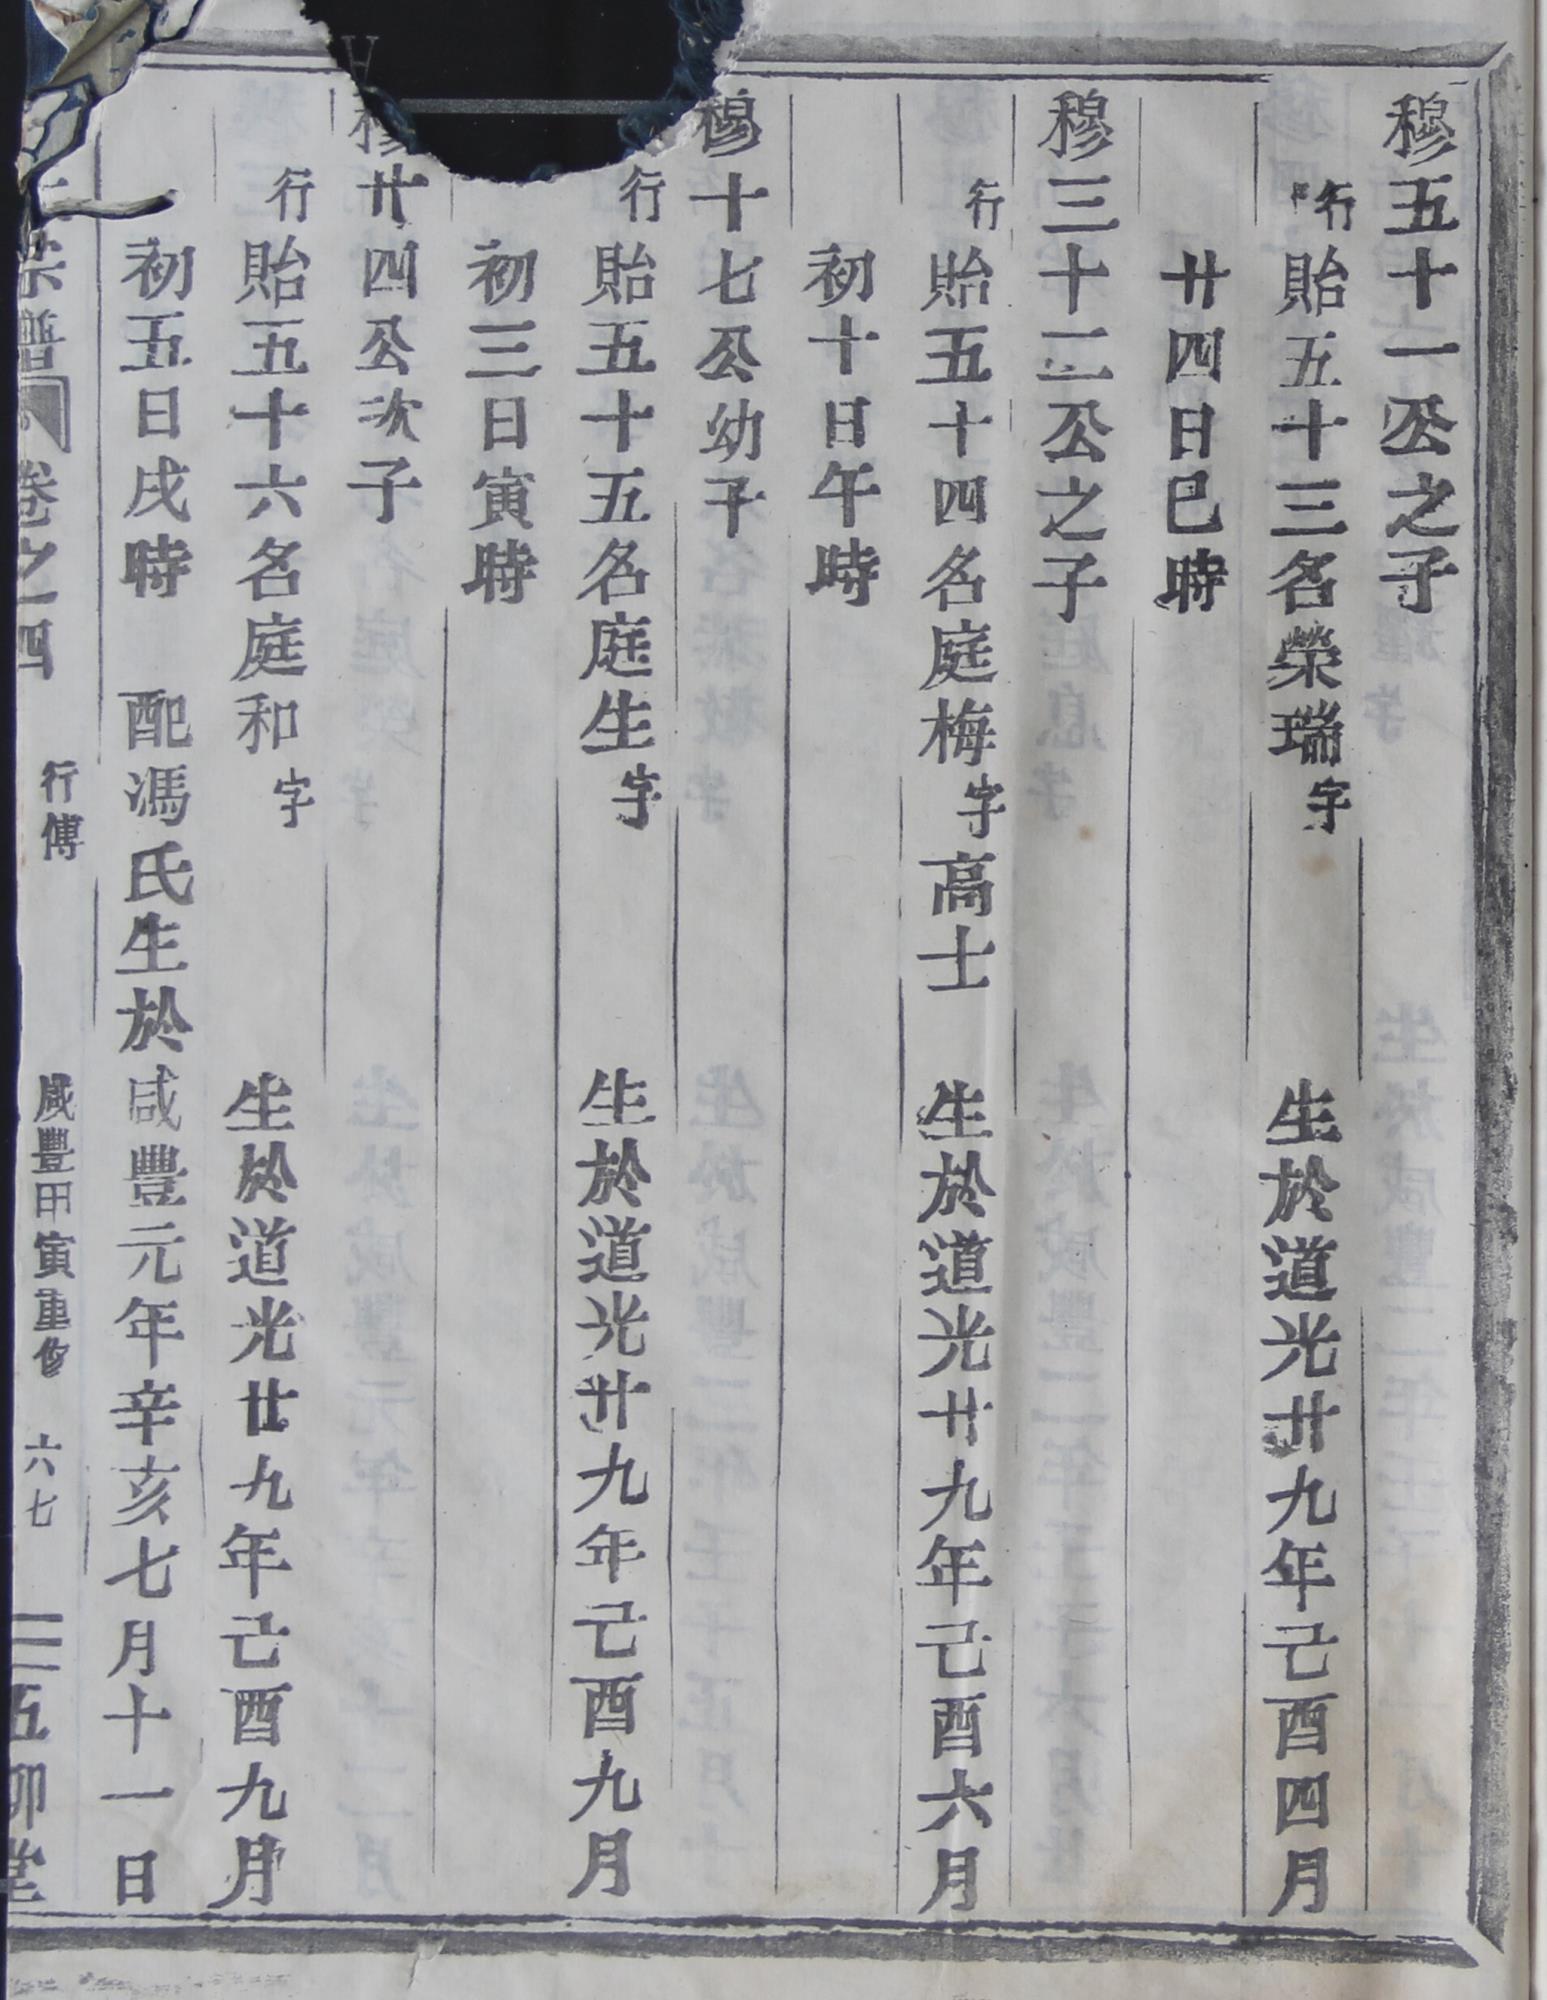 穆五十一公之子
行貽五十三名榮瑞字 生於道光廿九年己酉四月
廿四日巳時
穆三十二公之子
行貽五十四名庭梅字高士 生於道光廿九年己酉六月
初十日午時
穆十七公幼子
行貽五十五名庭生字 生於道光廿九年己酉九月
初三日寅時
穆廿四公次子
行貽五十六名庭和字 生於道光廿九年己酉九月
初五日戌時 配馮氏生於咸豐元年辛亥七月十一日
宗譜 卷之四 行傳 咸豐甲寅重修 六七 五柳堂